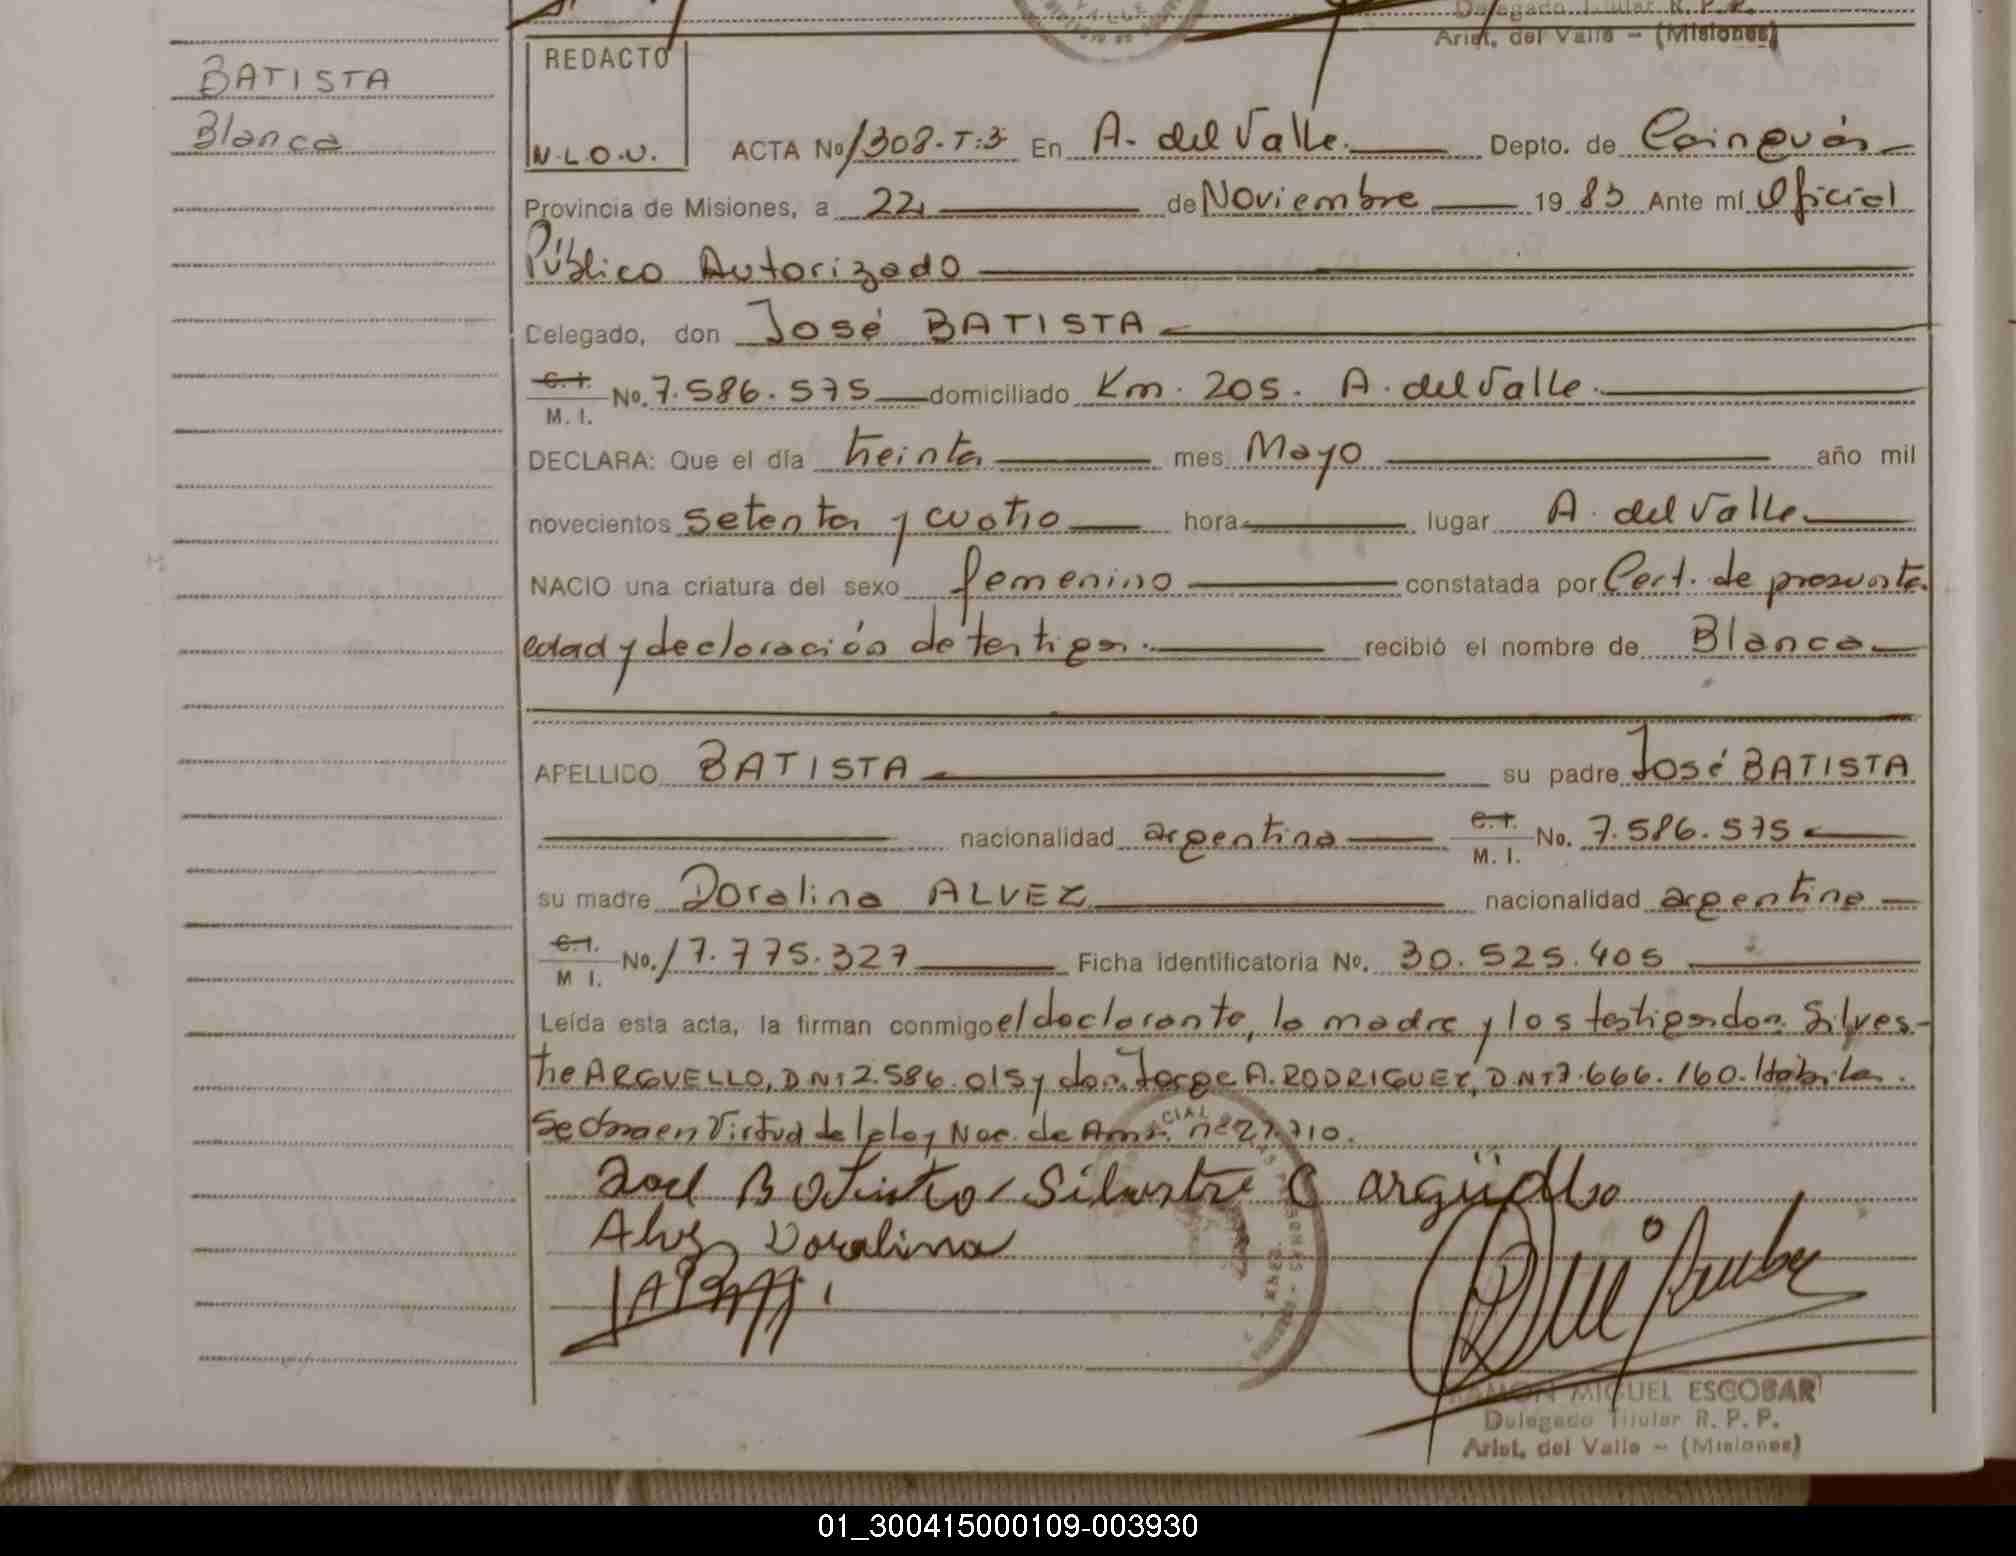 Delegado Titular R. P. P.
Arist. del Valle - (Misiones)
BATISTA
Blanca
REDACTO
N.L.O.U.
ACTA No 1308.T:3 En A. del Valle. Depto. de Cainguás
Provincia de Misiones, a 22 de Noviembre 19 83 Ante mí Oficial
Público Autorizado
Celegado, don José BATISTA
C. I. / M. I. No. 7.586.575 domiciliado Km. 205. A. del Valle.
DECLARA: Que el día treinta mes Mayo año mil
novecientos setenta y cuatro hora lugar A. del Valle
NACIO una criatura del sexo femenino constatada por Cert. de presunta
edad y declaración de testigos. recibió el nombre de Blanca
APELLIDO BATISTA su padre José BATISTA
nacionalidad argentina C. I. / M. I. No. 7.586.575
su madre Doralina ALVEZ nacionalidad argentina
C. I. / M I. No. 17.775.327 Ficha identificatoria No. 30.525.405
Leída esta acta, la firman conmigo el declarante, la madre y los testigos don Silves-
tre ARGUELLO, DNI 2.586.015 y don Jorge A. RODRIGUEZ, DNI 7.666.160. Hábiles.
Se labra en Virtud de la ley Nac. de Amn. nº 22.710.
José Batista Silvestre C argüello
Alvez Doralina
RAMON MIGUEL ESCOBAR
Delegado Titular R. P. P.
Arist. del Valle - (Misiones)
01_300415000109-003930